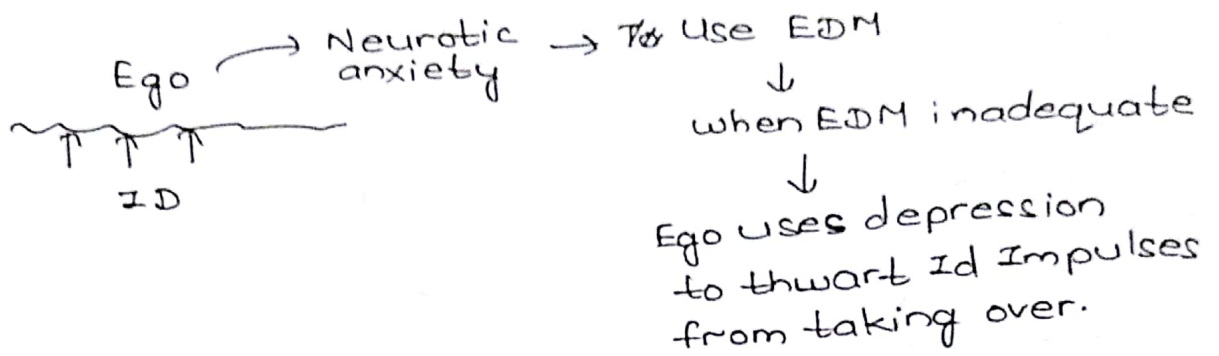 Ego → Neurotic anxiety → Use EDM
ID
↓
when EDM inadequate
↓
Ego uses depression
to thwart Id Impulses
from taking over.